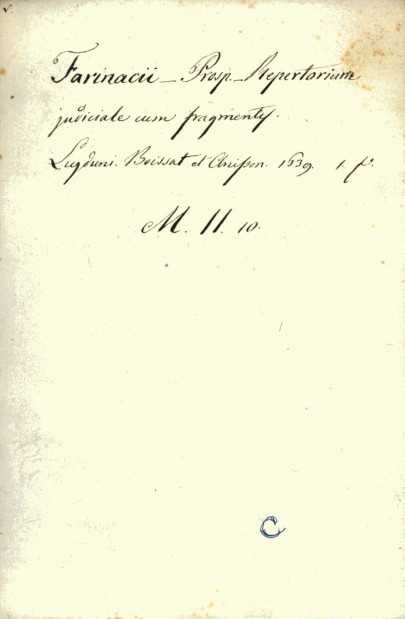 Farinacii - Prosp. - Repertorium
judiciale cum fragmentys.
Lugduni. Boissat et Anisson. 1639. 1. f.
M. II. 10.
C